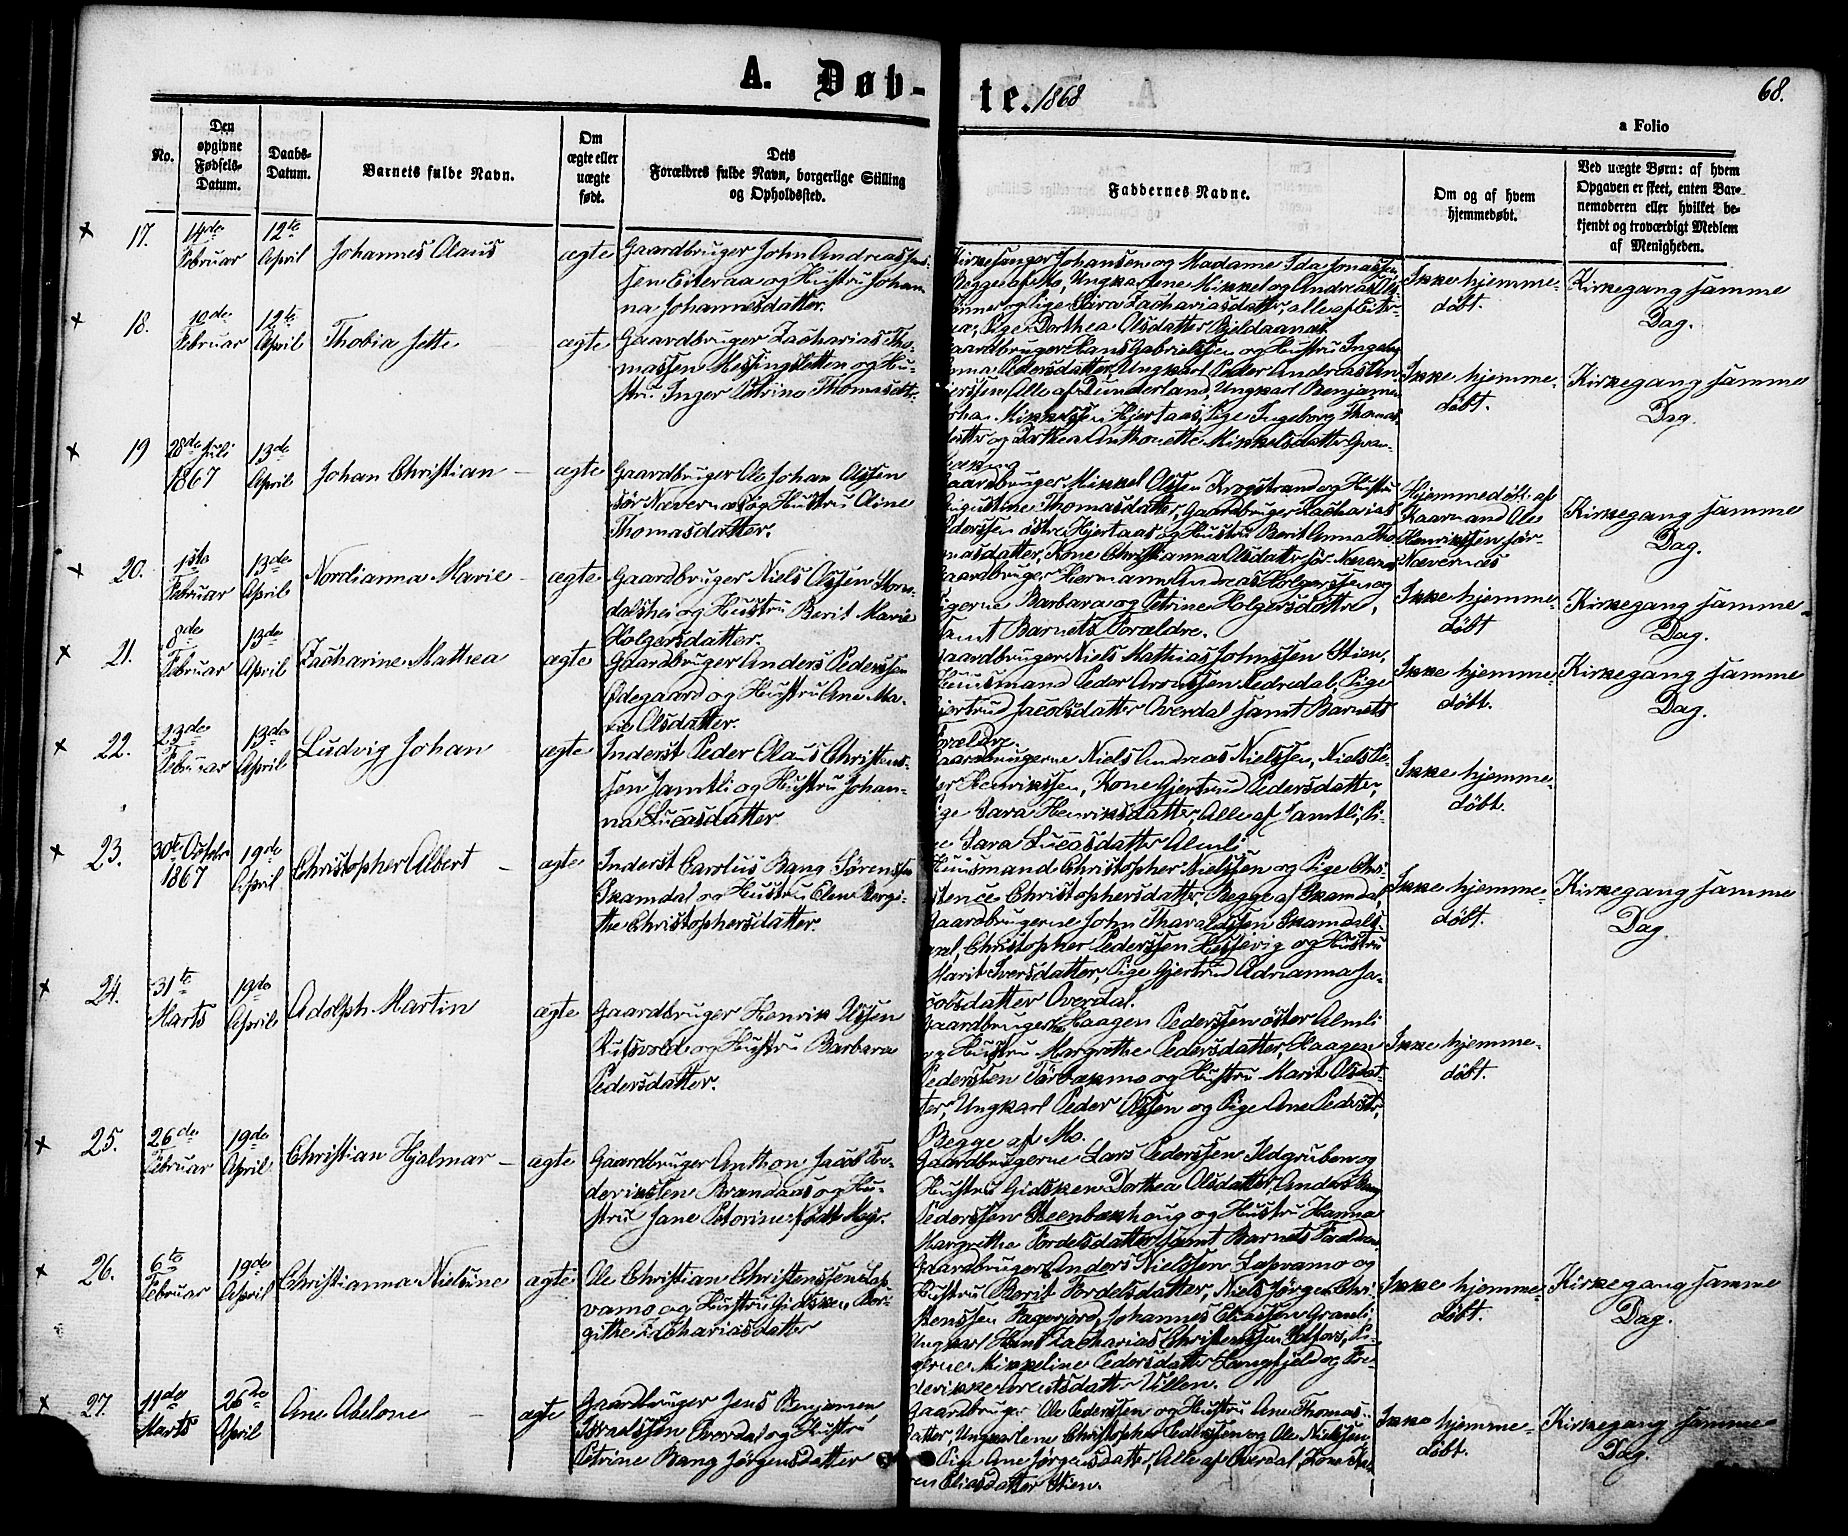 A. Døb-
te. 1868
68.
a Folio
No.
Den
opgivne
Fødsels-
Datum.
Daabs-
Datum.
Barnets fulde Navn.
Om
ægte eller
uægte
født.
Dets
Forældres fulde Navn, borgerlige Stilling
og Opholdssted.
Faddernes Navne.
Om og af hvem
hjemmedøbt.
Ved uægte Børn: af hvem
Opgaven er skeet, enten Bar-
nemoderen eller hvilket be-
kjendt og troværdigt Medlem
af Menigheden.
17.
14de
Februar
12te
April
Johannes Olaus
ægte
Gaardbruger John Andreas
sen Eiteraa og Hustru Johan-
na Johannesdatter.
Kirkesanger Johansen og Madame Ida Jonassen
Begge af Mo, Ungkarlene Mikkel og Andreas
og Pige Sara Zachariasdatter, alle af Eiter-
aa, Pige Dorthea Olsdatter Bjeldaanæs
Ikke hjemme-
døbt.
Kirkegang samme
Dag.
18.
10de
Februar
12te
April
Thobia Jette
ægte
Gaardbruger Zacharias Tho-
massen Messingsletten og Hu-
stru Inger Petrine Thomasdtr.
Gaardbruger Hans Gabrielssen og Hustru Ingeborg
Anna Pedersdatter, Ungkarl Peder Andreas An-
derssen, Alle af Dunderland, Ungkarl Benjamin
Mikkelssen Hjertaas, Pige Ingeborg Thomas-
datter og Dorthea Anthonette Mikkelsdatter
Ikke hjemme-
døbt.
Kirkegang samme
Dag.
19
28de Juli
1867
13de
April
Johan Christian
ægte
Gaardbruger Ole Johan Olssen
Sør Nævernæs og Hustru Oline
Thomasdatter.
Gaardbruger Mikkel Olssen Krogstrand og Hustru
Augustine Thomasdatter, Gaardbruger Zacharias
Pederssen østre Hjertaas og Hustru Berit Anna Tho-
masdatter, Kone Christianna Olsdatter sør Nævernæs
Hjemmedøbt af
Kaarmand Ole
Henrikssen sør-
Nævernæs
Kirkegang samme
Dag.
20.
1ste
Februar
13de
April
Nordianna Marie
ægte
Gaardbruger Niels Olssen Stor-
dalshei og Hustru Berit Marie
Holgersdatter.
Gaardbruger Hermann Andreas Holgerssen og
Pigerne Barbara og Petrine Holgersdøttre,
samt Barnets Forældre.
Ikke hjemme-
døbt
Kirkegang samme
Dag.
21.
8de
Februar
13de
April
Zacharine Mathea
ægte
Gaardbruger Anders Pederssen
Ødegaard og Hustru Ane Ma-
rie Olsdatter.
Gaardbruger Niels Mathias Johnssen Stien,
Huusmand Peder Aronssen Redredal, Pige
Gjertrud Jacobsdatter Overdal samt Barnets
Forældre.
Ikke hjemme-
døbt.
Kirkegang samme
Dag.
22.
23de
Februar
13de
April
Ludvig Johan
ægte
Inderst Peder Olaus Christens-
sen Jamtli og Hustru Johan-
na Lucasdatter
Gaardbrugerne Niels Andreas Nielssen, Niels Pe-
der Henrikssen, Kone Gjertrud Pedersdatter,
Pige Sara Henriksdatter, Alle af Jamtli, Pi-
ge Sara Lucasdatter Almli
Ikke hjemme-
døbt.
23.
30te Octobr
1867
19de
April
Christopher Albert
ægte
Inderst Carolus Bang Sørenssen
Skamdal og Hustru Elen Bergi-
the Christophersdatter.
Huusmand Christopher Nielssen og Pige Chri-
stence Christophersdatter, Begge af Skamdal,
Gaardbrugerne John Tharaldssen Skamdals-
, Christopher Pederssen Hestevig og Hustru
Marit Iversdatter, Pige Gjertrud Adrianna Ja-
cobsdatter Overdal.
Ikke hjemme-
døbt.
Kirkegang samme
Dag.
24.
31te
Marts
19de
April
Adolph Martin
ægte
Gaardbruger Henrik Olssen
Rufsvold og Hustru Barbara
Pedersdatter.
Gaardbruger Haagen Pederssen øster Almli
og Hustru Margrethe Pedersdatter, Haagen
Pederssen Tørbækmo og Hustru Marit Olsdat-
ter, Ungkarl Peder Olssen og Pige Ane Pedersdtr,
Begge af Mo.
Ikke hjemme-
døbt.
25.
26de
Februar
19de
April
Christian Hjalmar
ægte
Gaardbruger Anthon Jacob Fre-
derikssen Brandaas og Hu-
stru Jane Petorine født
Gaardbrugerne Lars Pederssen Ildgruben og
Hustru Gidsken Dorthea Olsdatter, Anders Bang
Pederssen Steenbækhoug og Hustru Hanna
Margrethe Fordelsdatter samt Barnets Forældre.
26.
6te
Februar
19de
April
Christianna Nielsine
ægte
Ole Christian Christenssen Lap-
vamo og Hustru Gidsken Bor-
githe Zachariasdatter
Gaardbruger Anders Nielssen Lapvamo og
Hustru Berit Fordelsdatter, Niels Jørgen Chri-
stenssen Fagerjord, Johannes Eliassen Granli
Ungkarl Hans Zacharias Christenssen, Pi-
gerne Mikkeline Pedersdatter Langfjeld og Fre-
derikke Arentsdatter Villen.
Ikke hjemme-
døbt.
Kirkegang samme
Dag.
27.
11de
Marts
26de
April
Ane Abelone
ægte
Gaardbruger Jens Benjamin
Overdal og Hustru
Petrine Bang Jørgensdatter
Gaardbruger Ole Pederssen og Hustru Ane Thomas-
datter, Ungkarlene Christopher Pederssen og Ole Nielssen
Pige Ane Jørgensdatter, Alle af Overdal, Kone
Eliasdatter Stien.
Ikke hjemme-
døbt.
Kirkegang samme
Dag.